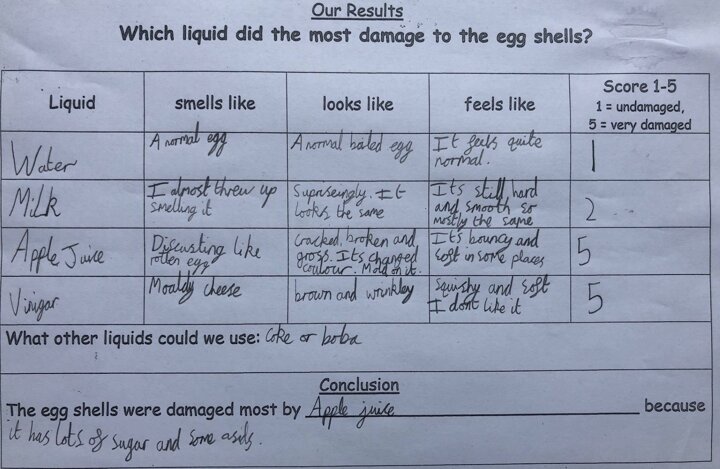 Our Results
Which liquid did the most damage to the egg shells?
Liquid smells like looks like feels like Score 1-5
1 = undamaged,
5 = very damaged
Water A normal egg A normal boiled egg It feels quite
normal. 1
Milk I almost threw up
smelling it Supriseingly. It
looks the same Its still hard
and smooth so
mostly the same 2
Apple Juice Discusting like
rotten egg Cracked, broken and
gross. Its changed
coulour. Mold on it. It's bouncy and
soft in some places 5
Vinigar Moaldy cheese brown and wrinkley Squishy and soft
I dont like it 5
What other liquids could we use: Coke or boba
Conclusion
The egg shells were damaged most by Apple juice because
it has lots of sugar and some asids.